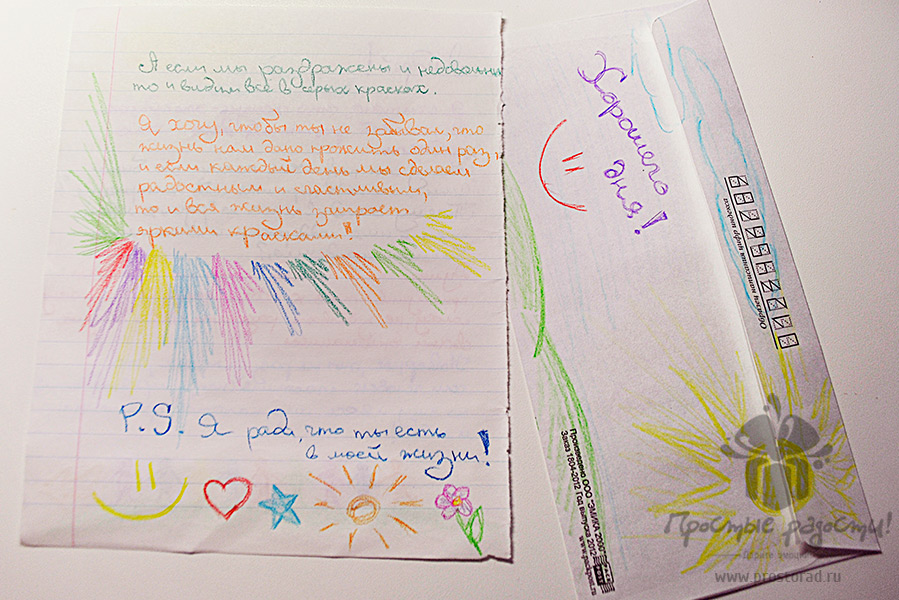 А если мы раздражены и недовольны
то и видим все в серых красках.
Я хочу, чтобы ты не забывал, что
жизнь нам дано прожить один раз,
и если каждый день мы сделаем
радостным и счастливым,
то и вся жизнь заиграет
яркими красками!
P.S. Я рада, что ты есть
в моей жизни!
Хорошего
дня!
Образец написания цифр индекса
Произведено ООО "ЭМИКА 2000"
Заказ 1804-2012 Год выпуска 2012
Простые радости!
www.prostorad.ru